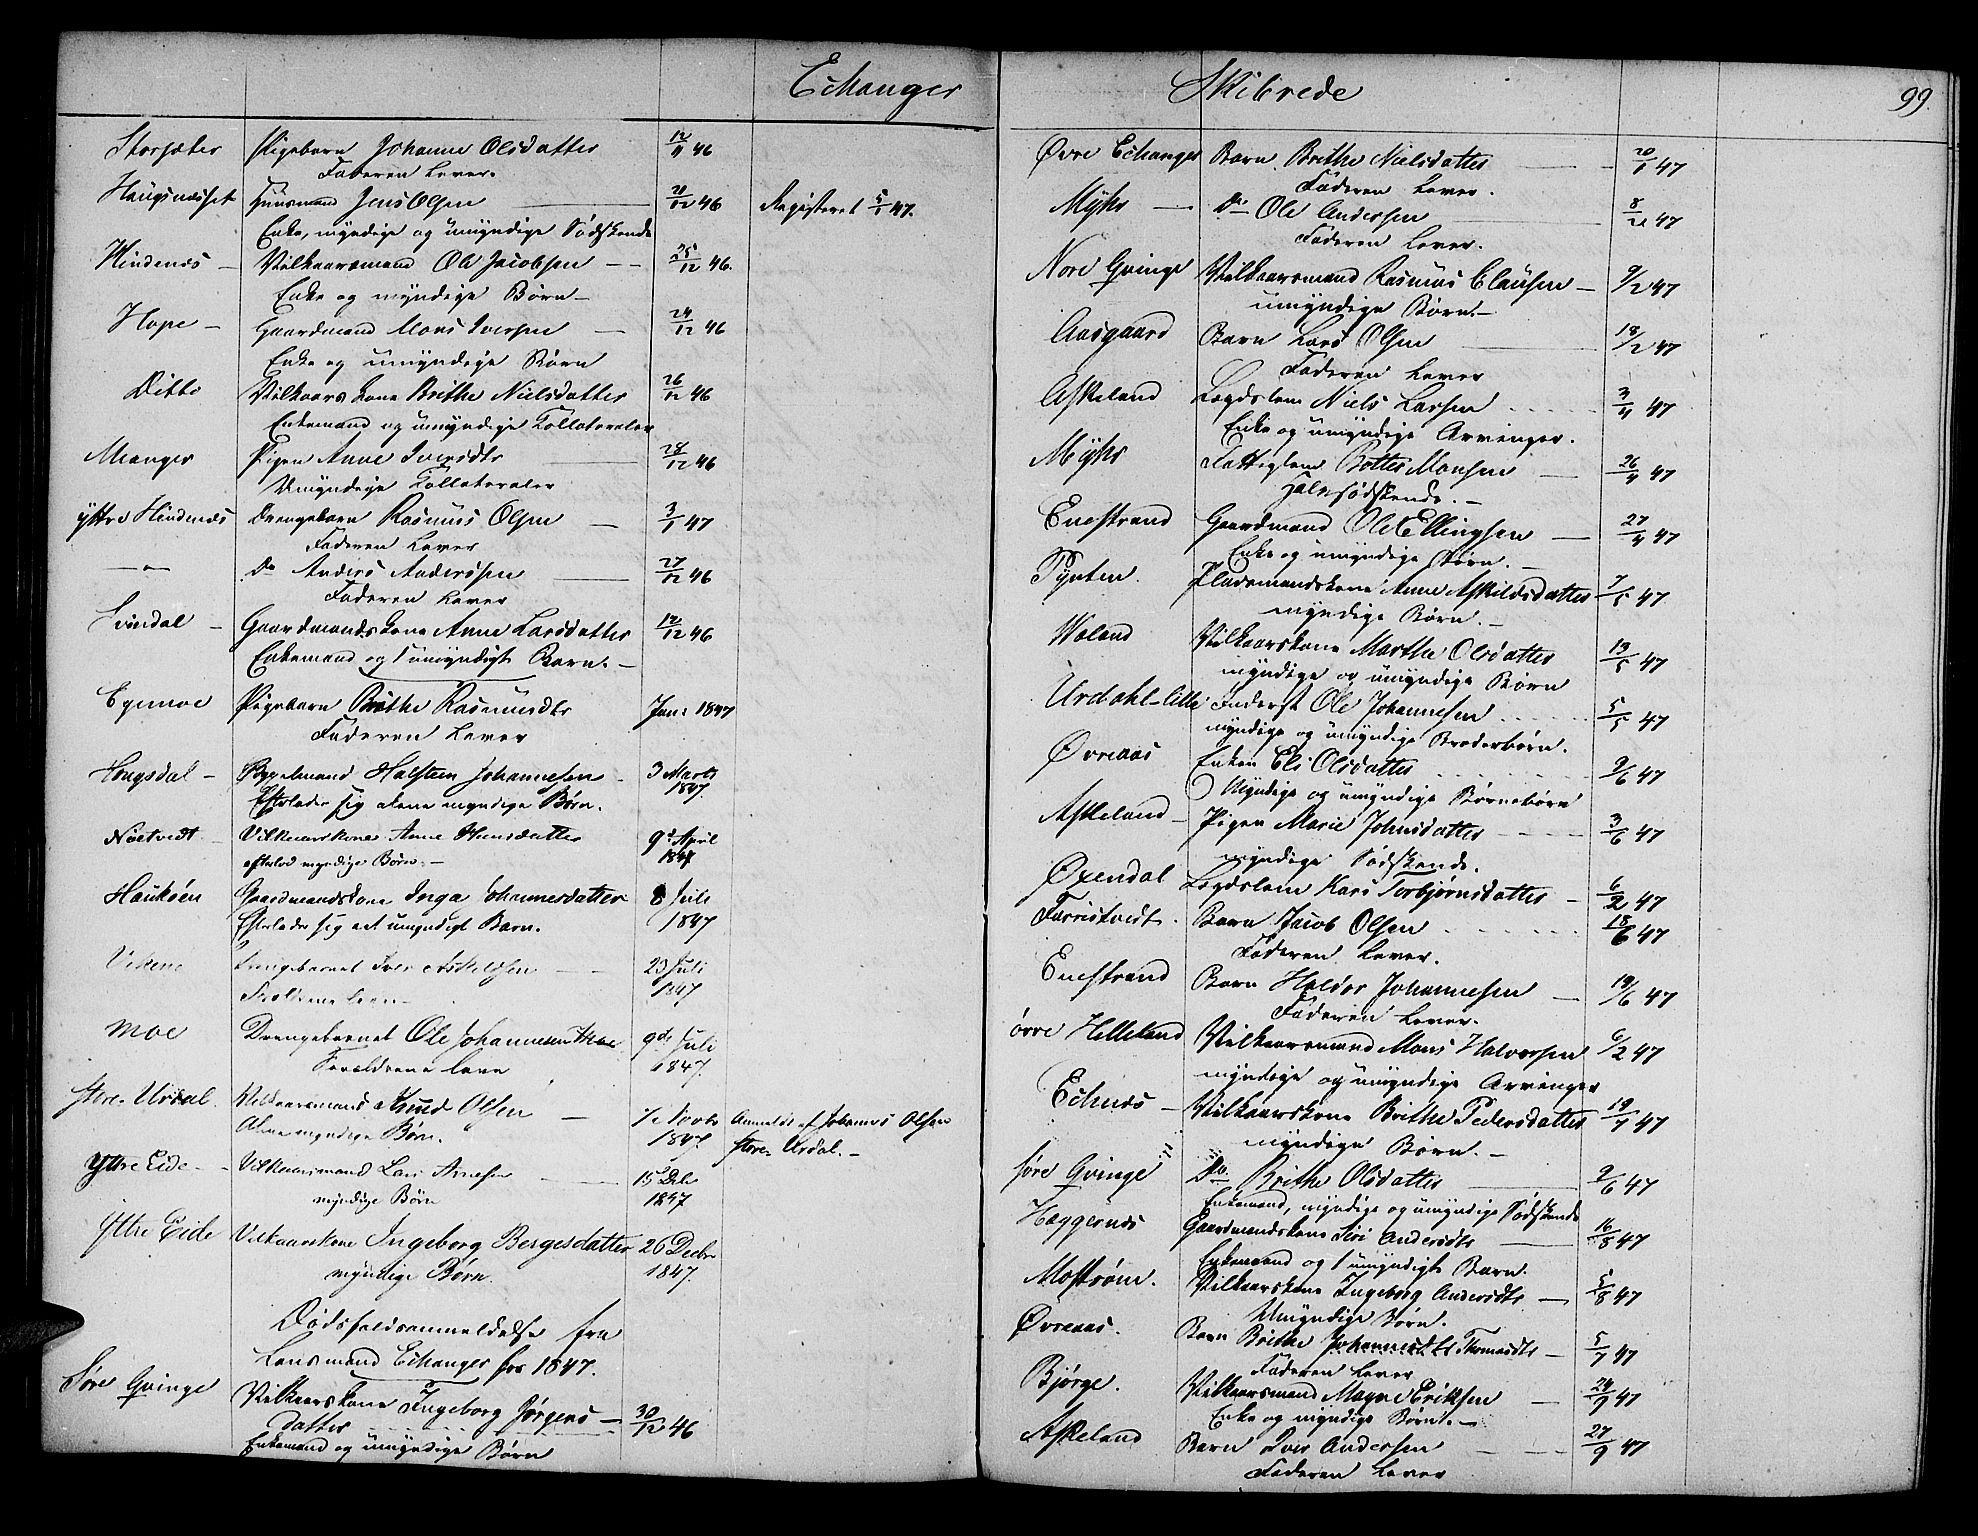 Echanger Skibrede 99.
Storsæter Pigebarn Johanne Olsdatter 12/11 46
Faderen Lever.
Haugsnæsset Huusmand Jens Olsen 21/12 46 Registeret 5/1 47.
Enke, myndige og umyndige Sødskende
Hindenæs Vilkaarsmand Ole Jacobsen 25/12 46.
Enke og myndige Børn
Hope Gaardmand Mons Iversen 24/12 46
Enke og umyndige Børn
Ditto Vilkaarskone Brithe Nielsdatter 26/12 46
Enkemand og umyndige Collateraler
Manger Pigen Anne Iversdtr 28/12 46
Umyndige Collateraler
yttre Hindenæs Drengebarn Rasmus Olsen 3/1 47
Faderen Lever
—„— Do Anders Anderssen 27/12 46
Faderen Lever
Svindal Gaardmandskone Anne Larsdatter 12/12 46
Enkemand og 1 umyndigt Barn.
Egemoe Pigebarn Brithe Rasmusdtr Jan: 1847
Faderen Lever
Hougsdal Byggelmand Holsteen Johannesen 3 Marts 1847.
Efterlader sig alene myndige Børn.
Nöetvedt Vilkaarskone Anne Hansdatter 9d April 1847
efterlod myndige Børn.
Haukøen Gaardmandskone Inga Johannesdatter 8 Juli 1847
Efterlader sig eet umyndigt Barn.
Vikene Drengebarnet Iver Askeldsen 23 Juli 1847
Forældrene leve
Moe Drengebarnet Ole Johannesen Moe 9de Juli 1847.
Forældrene leve
store Urdal. Vilkaarsmand Knud Olsen 7 Novbr 1847. Anmeldt af Johannes Olsen
Alene myndige Børn. store Urdal.
Yttre Eide Vilkaarsmand Lars Arnesen 15 Dcbr 1847
myndige Børn
Yttre Eide Vilkaarskone Ingeborg Bergesdatter 26 Decbr 1847.
myndige Børn.
Dödsfaldsanmeldelse fra
Lensmand Echanger for 1847.
Søre Qvinge Vilkaarskone Ingeborg Jørgens-
datter 30/12 46
Enkemand og umyndige Børn
Øvre Echanger Barn Brithe Nielsdatter 20/1 47
Faderen Lever.
Myhr Do Ole Andersen 8/2 47
Faderen Lever.
Nore Qvinge Vilkaarsmand Rasmus Clausen 9/2 47
umyndige Børn.
Aasgaard Barn Lars Olsen 18/2 47
Faderen Lever
Askeland Lægdslem Niels Larsen 3/4 47
Enke og umyndige Arvinger.
Myhr Fattiglem Botter Monsen 26/4 47
Halvsødskende.
Enestrand Gaardmand Ole Ellingsen 27/4 47
Enke og umyndige Børn.
Pynten. Pladsmandskone Anne Askildsdatter 7/5 47
myndige Børn.
Waland Vilkaarskone Marthe Olsdatter 19/5 47
myndige og umyndige Børn
Urdahl-lille Inderst Ole Johannesen 5/5 47
myndige og umyndige Broderbørn.
Øvreaas Enken Eli Olsdatter 9/6 47
Myndige og umyndige Børnebørn
Askeland Pigen Marie Johnsdatter 3/6 47
myndige Sødskende.
Oxendal Lægdslem Kari Torbjørnsdatter 6/2 47
Farristvedt. Barn Jacob Olsen 18/6 47
Faderen Lever.
Enestrand Barn Haldor Johannesen 19/6 47
Faderen Lever.
övre Helleland Vilkaarsmand Mons Halvorsen 6/2 47
myndige og umyndige Arvinger
Echnæs Vilkaarskone Brithe Pedersdatter 19/7 47
myndige Børn.
søre Qvinge Do. Brithe Olsdatter 2/6 47
Enkemand, myndige og umyndige Sødskende
Hæggernæs Gaardmandskone Siri Andersdtr 16/8 47
Enkemand og 1 umyndigt Barn.
Mostrøm. Vilkaarskone Ingeborg Andersdtr 5/8 47
Umyndige Børn.
Øvreaas. Barn Brithe Johannesdtr Thomasdtr 5/7 47
Faderen Lever
Bjørge. Vilkaarsmand Magne Eriksen 24/9 47
Enke og myndige Børn.
Askeland Barn Iver Andersen 27/9 47
Faderen Lever